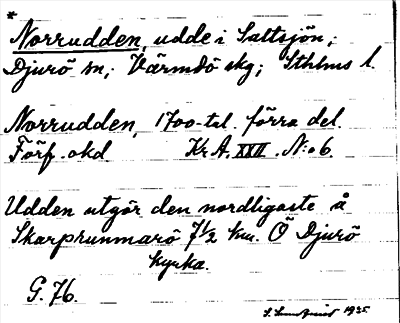 *
Norrudden, udde i Saltsjön;
Djurö sn; Värmdö skg; Sthlms l.
Norrudden, 1700-tal. förra del.
Förf. okd Kr. A. XVII. N:o 6.
Udden utgör den nordligaste å
Skarprunmarö 7 1/2 km. O Djurö
kyrka.
G. 76.
1935